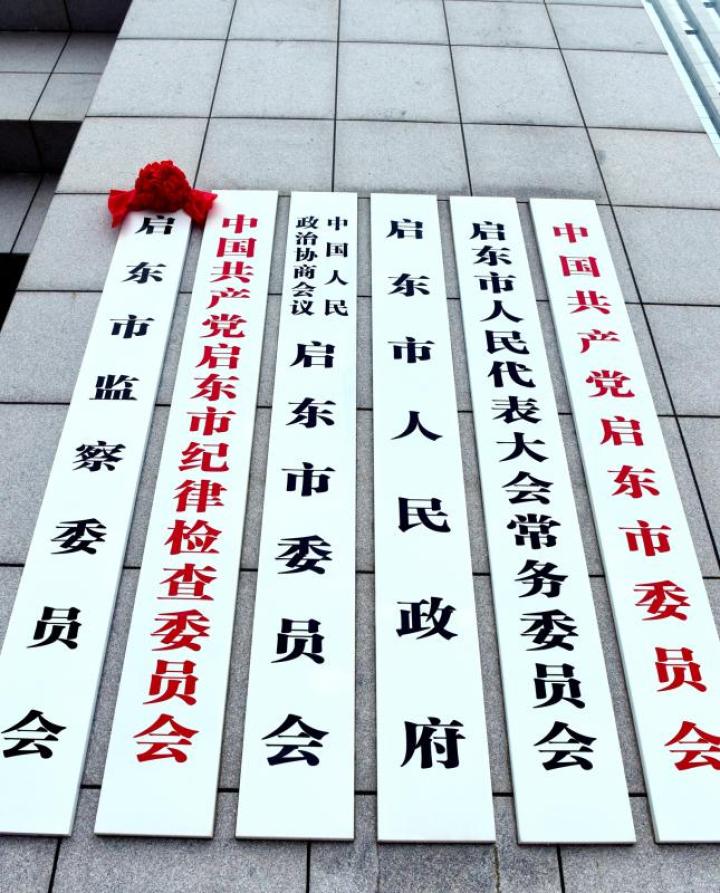 中国共产党启东市委员会
启东市人民代表大会常务委员会
启东市人民政府
中国人民
政治协商会议
启东市委员会
中国共产党启东市纪律检查委员会
启东市监察委员会